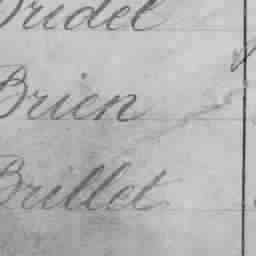 Bridel
Brien
Brillet